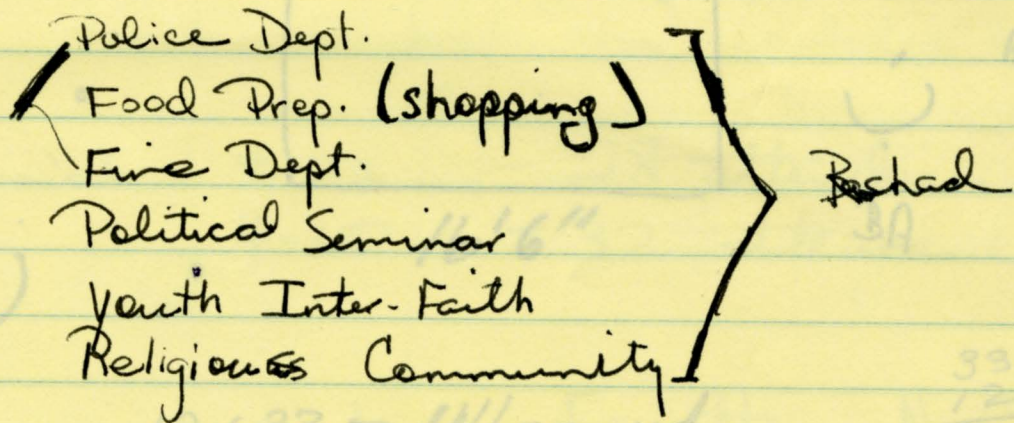 Police Dept.
Food Prep. (shopping)
Fire Dept.
Political Seminar
Youth Inter-Faith
Religious Community
Rashad
11'6"
BA